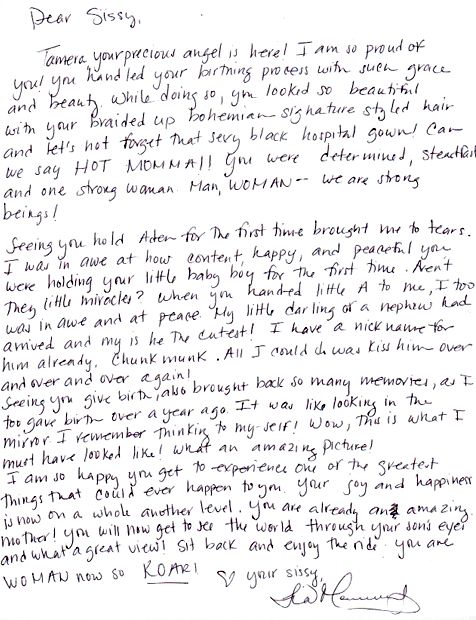 Dear Sissy,
Tamera your precious angel is here! I am so proud of
you! you handled your birthing process with such grace
and beauty. While doing so, you looked so beautiful
with your braided up bohemian signature styled hair
and let's not forget that sexy black hospital gown! Can
we say HOT MOMMA!! You were determined, steadfast
and one strong woman. Man, WOMAN -- we are strong
beings!
Seeing you hold Aden for the first time brought me to tears.
I was in awe at how content, happy, and peaceful you
were holding your little baby boy for the first time. Aren't
They little miracles? When you handed little A to me, I too
was in awe and at peace. My little darling of a nephew had
arrived and my is he the cutest! I have a nick name for
him already. Chunkmunk. All I could do was kiss him over
and over and over again!
Seeing you give birth, also brought back so many memories, as I
too gave birth over a year ago. It was like looking in the
mirror. I remember thinking to my-self! Wow, this is what I
must have looked like! what an amazing picture!
I am so happy you get to experience one of the greatest
things that could ever happen to you. Your joy and happiness
is now on a whole another level. You are already an amazing
mother! you will now get to see the world through your son's eyes
and what a great view! Sit back and enjoy the ride. you are
WOMAN now so ROAR!
♡ your sissy,